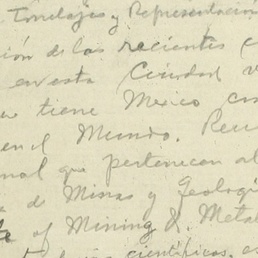 Tonelajes y Representación
ión de las recientes
en esta Ciudad
tiene Mexico
en el Mundo.
nal que pertenecen al
de Minas y Geologí
of Mining & Metal
científicos